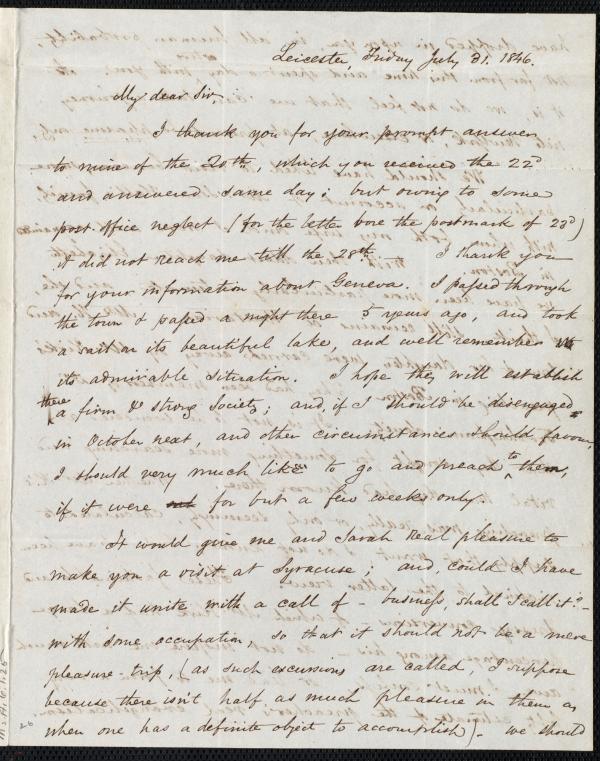 Leicester, Friday July 31. 1846.
My dear Sir,
I thank you for your prompt answer
to mine of the 20th, which you received the 22d
and answered same day; but owing to some
post-office neglect (for the letter bore the postmark of 23d)
it did not reach me till the 28th. — I thank you
for your information about Geneva. I passed through
the town & passed a night there 5 years ago, and took
a sail on its beautiful lake, and well remember
its admirable situation. I hope they will establish
there a firm & strong Society; and, if I should be disengaged
in October next, and other circumstances should favour,
I should very much like to go and preach to them,
if it were for but a few weeks only.
It would give me and Sarah real pleasure to
make you a visit at Syracuse; and, could I have
made it unite with a call of — business, shall I call it? —
with some occupation, so that it should not be a mere
pleasure-trip, (as such excursions are called, I suppose
because there isn't half as much pleasure in them as
when one has a definite object to accomplish). we should
Ms.A.6.1.25
26